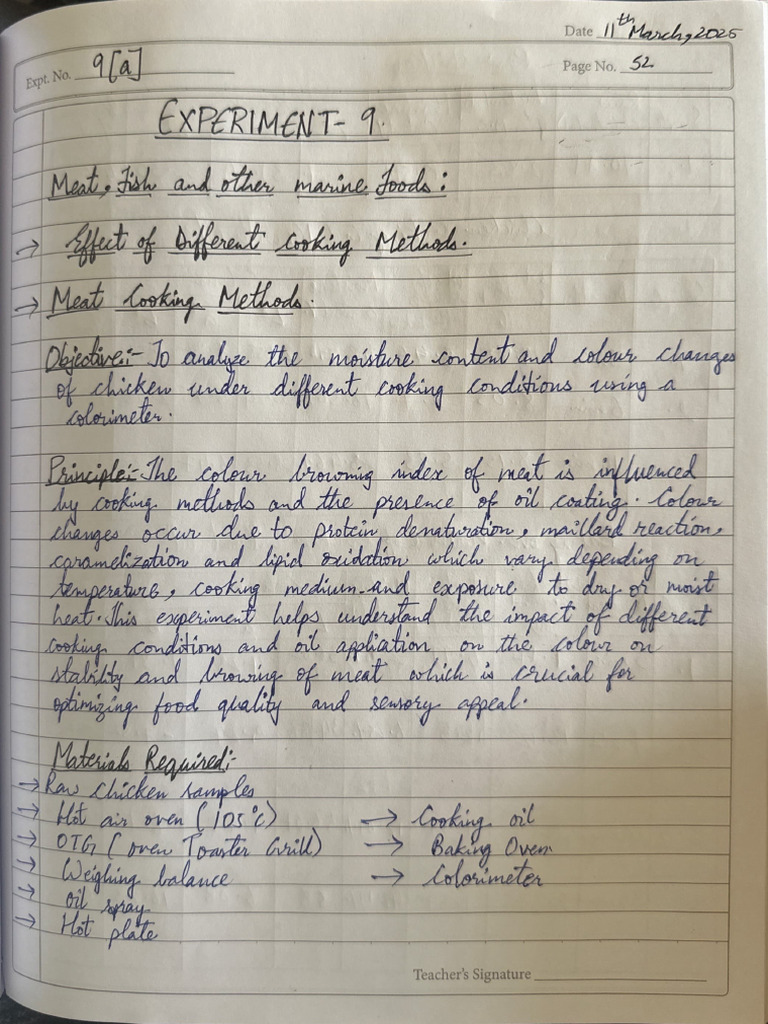 Date 11th March, 2025
Expt. No. 9[a]
Page No. 52
EXPERIMENT- 9.
Meat, Fish and other marine Foods:
→ Effect of Different Cooking Methods.
→ Meat Cooking Methods.
Objective:- To analyze the moisture content and colour changes
of chicken under different cooking conditions using a
colorimeter.
Principle:- The colour browning index of meat is influenced
by cooking methods and the presence of oil coating. Colour
changes occur due to protein denaturation, maillard reaction,
caramelization and lipid oxidation which vary depending on
temperature, cooking medium and exposure to dry or moist
heat. This experiment helps understand the impact of different
cooking conditions and oil application on the colour on
stability and browing of meat which is crucial for
optimizing food quality and sensory appeal.
Materials Required:-
→ Raw chicken samples
→ Hot air oven (105°C) → Cooking oil
→ OTG (oven Toaster Grill) → Baking Oven
→ Weighing balance → Colorimeter
→ oil spray
→ Hot plate
Teacher's Signature